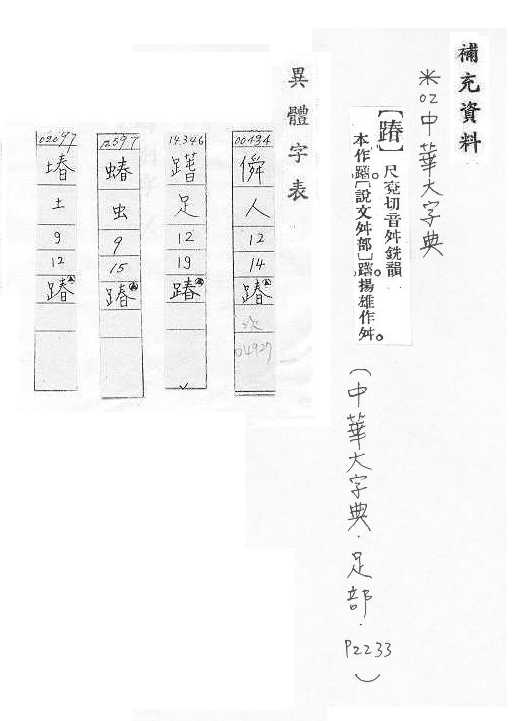 補充資料
※02中華大字典
【踳】尺兗切音舛銑韻
本作踳。[說文舛部]踳揚雄作舛。
(中華大字典.足部.P2233)
異體字表
00434
僢
人
12
14
踳
04927
14346
足
12
19
踳
12597
蝽
虫
9
15
踳
02097
堾
土
9
12
踳